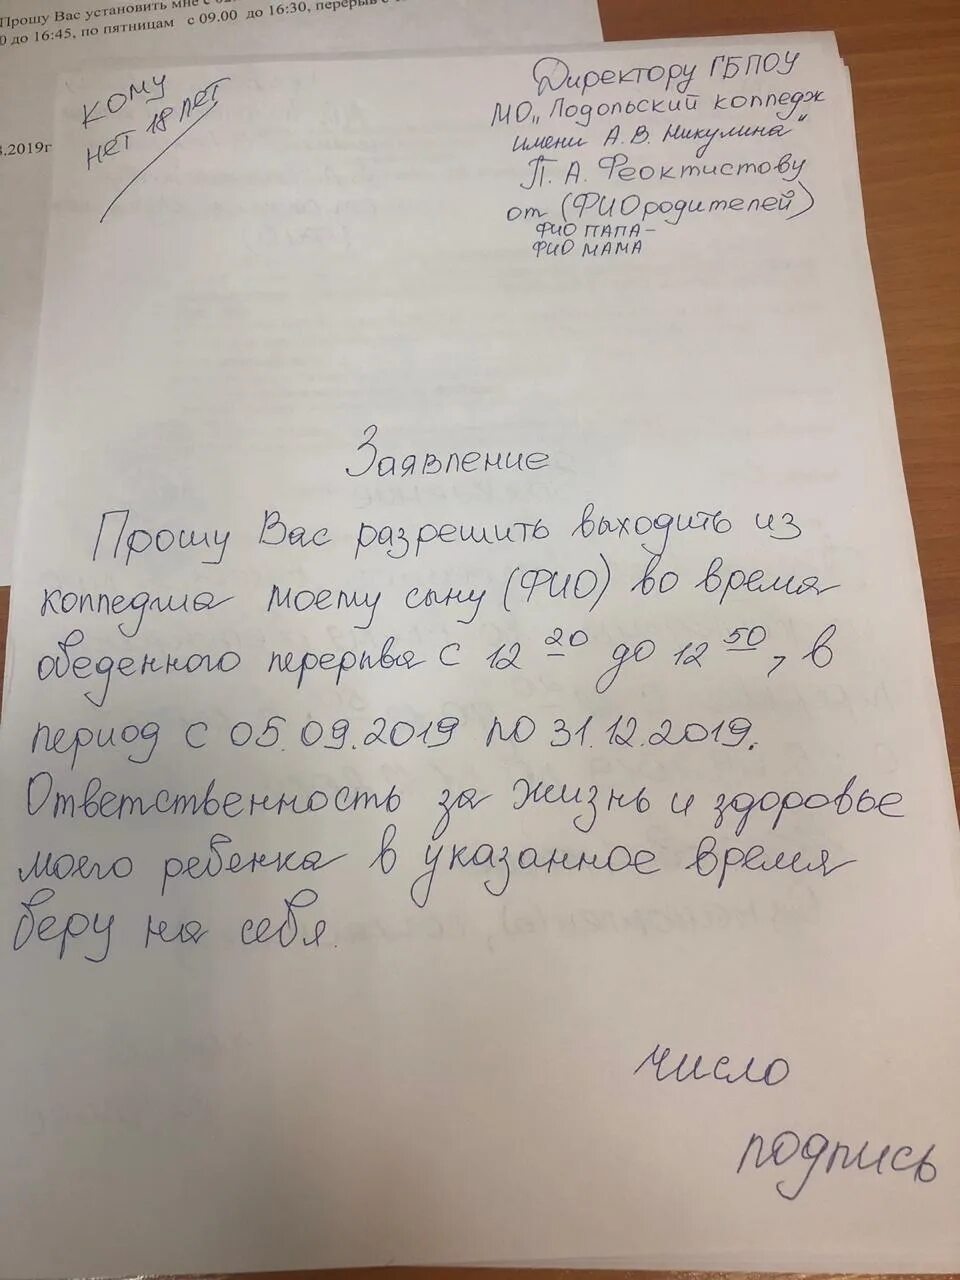 Прошу Вас установить мне с
0 до 16:45, по пятницам с 09.00 до 16:30, перерыв с
.2019г
кому
нет 18 лет
Директору ГБПОУ
МО „Подольский колледж
имени А.В. Никулина"
П.А. Феоктистову
от (ФИО родителей)
ФИО ПАПА-
ФИО МАМА
Заявление
Прошу Вас разрешить выходить из
колледжа моему сыну (ФИО) во время
обеденного перерыва с 12 20 до 12 50, в
период с 05.09.2019 по 31.12.2019.
Ответственность за жизнь и здоровье
моего ребенка в указанное время
беру на себя.
число
подпись